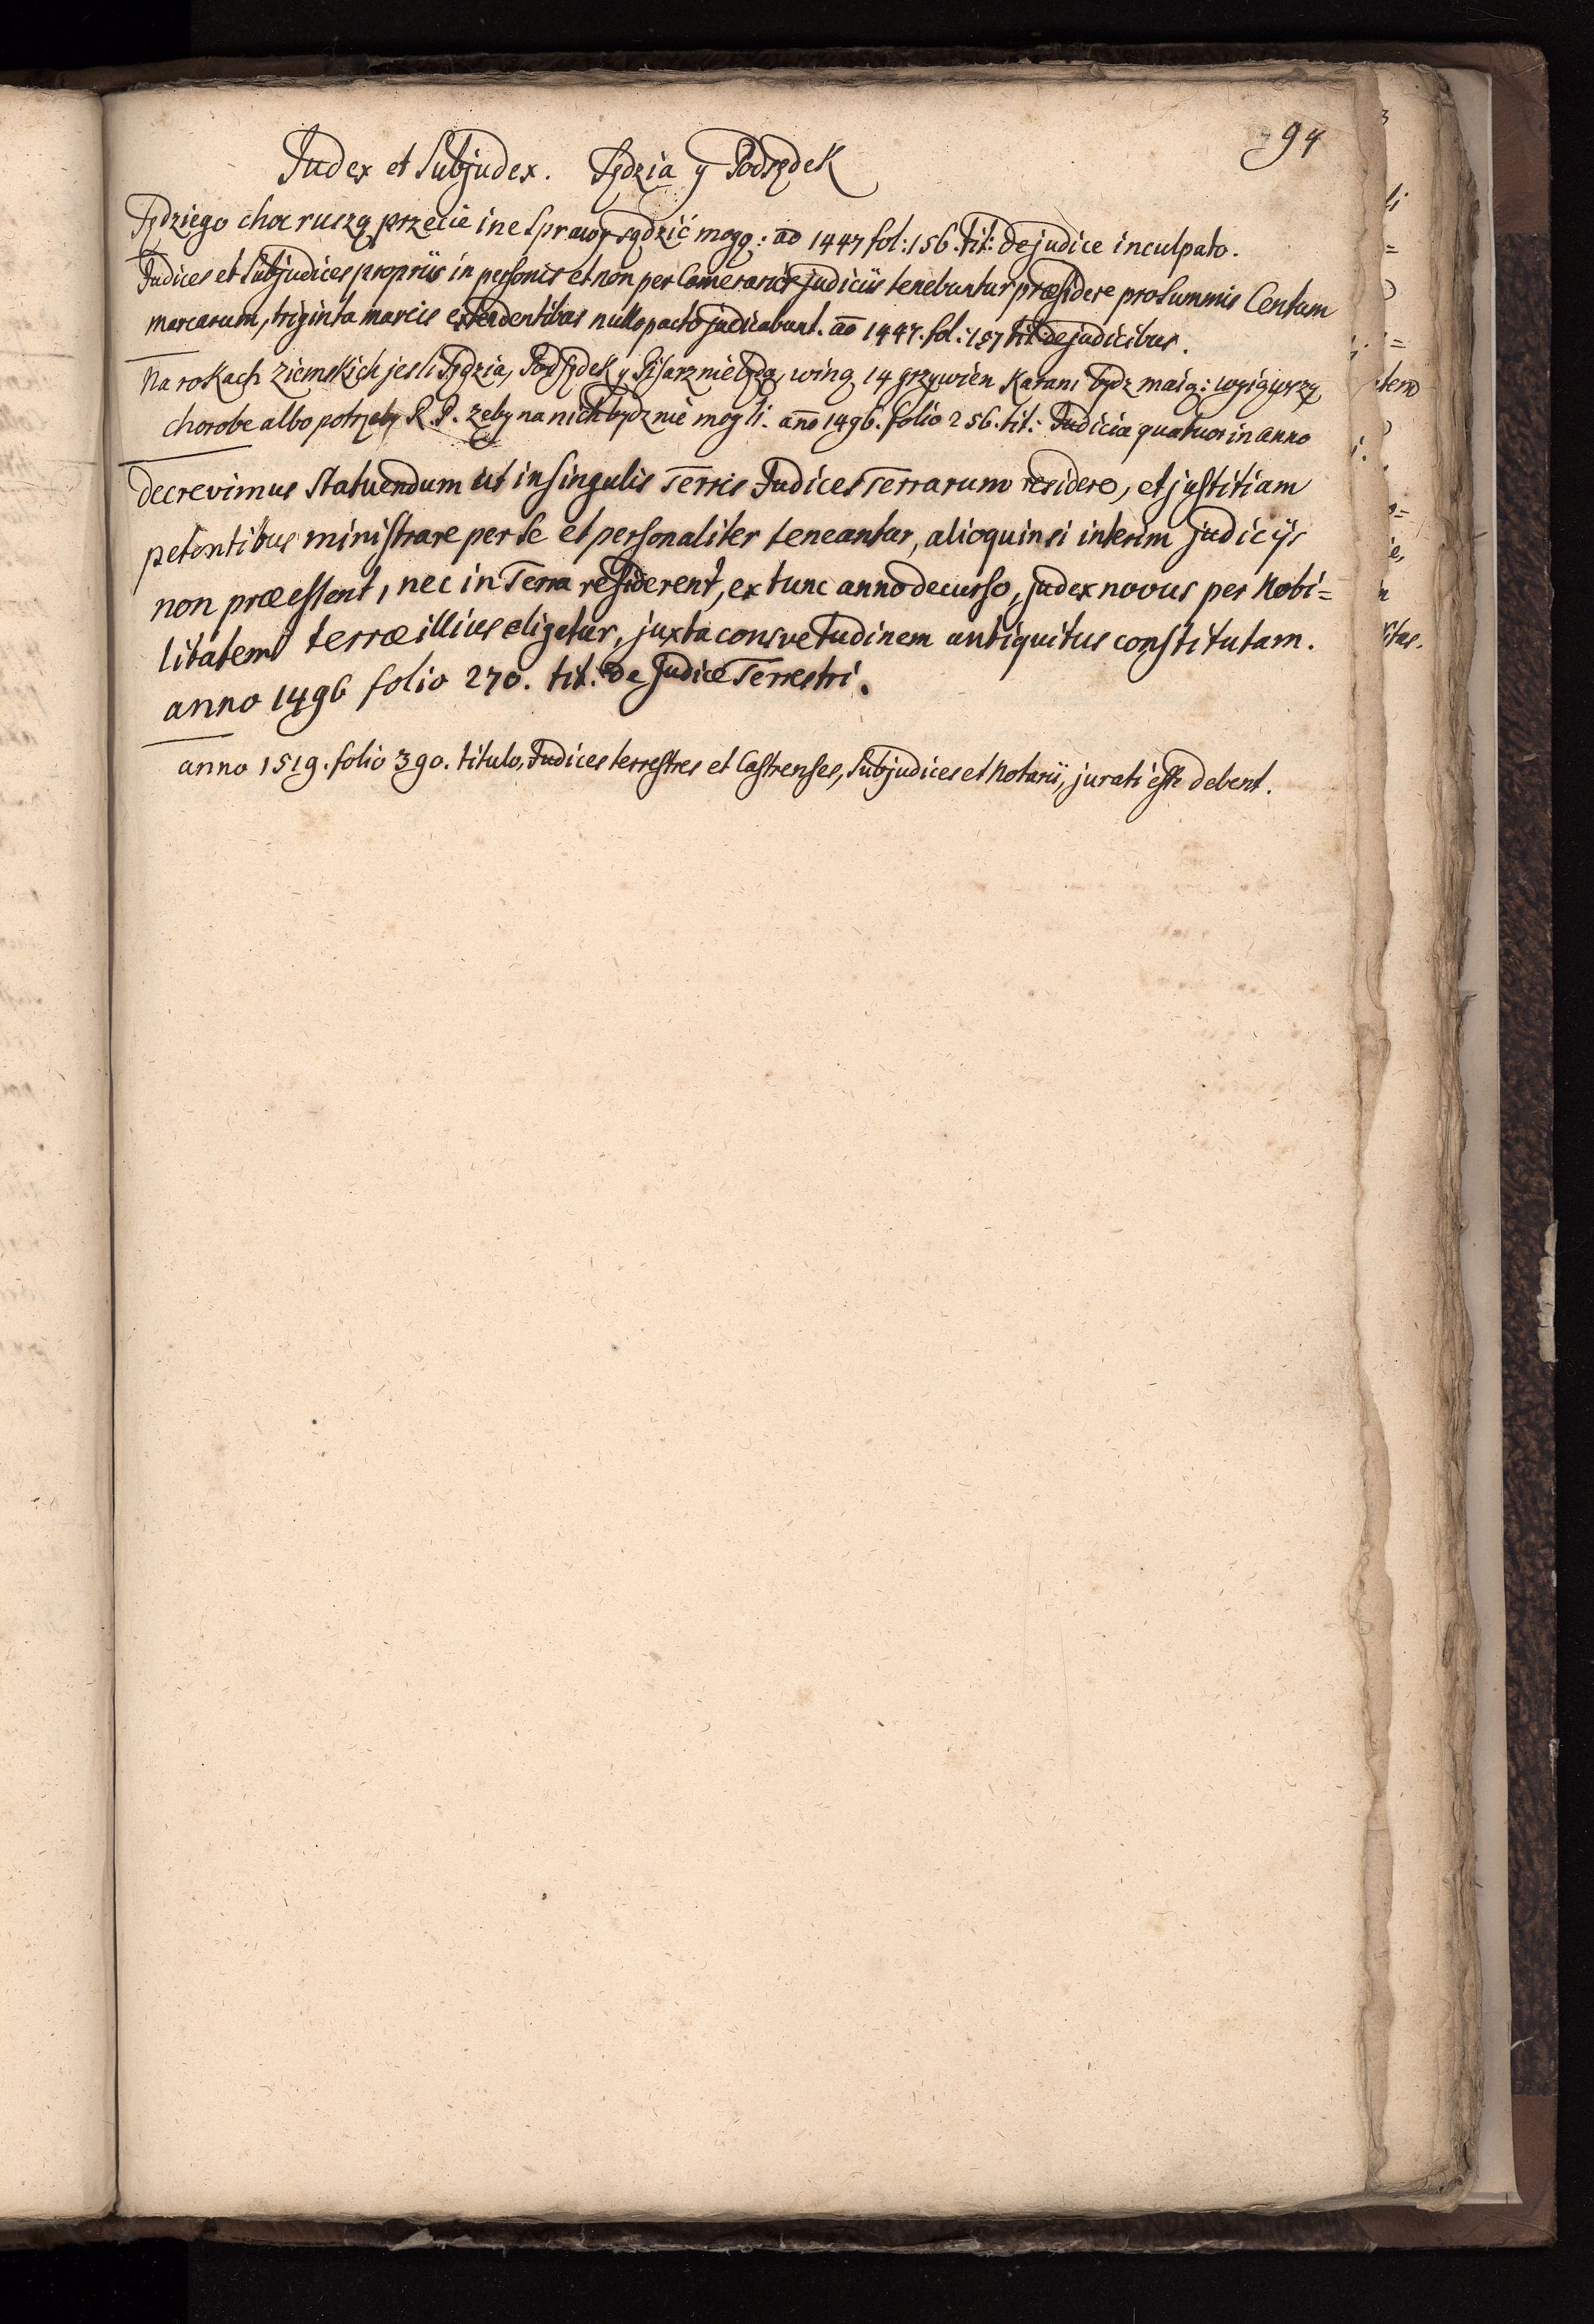 94
Judex et Subjudex. Sędzia y Podsędek
Sędziego choc ruszą przecie ine sprawy sądzić mogą: ao 1447 fol: 156. tit: de judice inculpato.
Judices et Subjudices propriis in personis et non per Camerarios judiciis tenebuntur præsidere pro Summis Centum
marcarum, triginta marcis excedentibus nullo pacto judicabunt. ao 1447. fol: 157 tit: de judicibus.
Na rokach ziemskich jesli Sędzia, Podsędek y Pisarz nie będą, winą 14 grzywien karani bydz maią: wyiąwszy
chorobe albo potrzeby R. P. zeby na nich bydz nie mogli. ano 1496. folio 256. tit: Judicia quatuor in anno
decrevimus Statuendum ut in singulis Terris Judices Terrarum residere, et justitiam
petentibus ministrare per se et personaliter teneantur, alioquin si interim judicijs
non præessent, nec in Terra residerent, ex tunc anno decurso, judex novus per Nobi=
litatem terræ illius eligetur, juxta consvetudinem antiquitus constitutam.
anno 1496 folio 270. tit: De Judice Terrestri.
anno 1519. folio 390. titulo, Judices terrestres et Castrenses, Subjudices et Notarii, jurati esse debent.